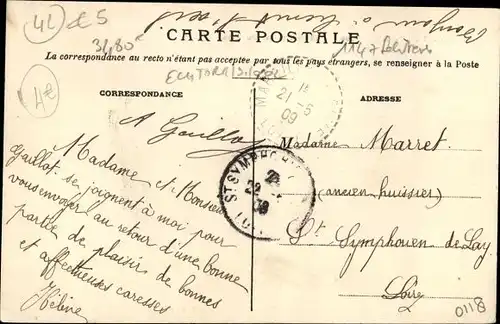 42 e5
3480
CARTE POSTALE
La correspondance au recto n'étant pas acceptée par tous les pays étrangers, se renseigner à la Poste
4e
CORRESPONDANCE
ADRESSE
21
09
A Gaillot
Madame et Monsieur
Gaillot se joignent à moi pour
vous envoyer au retour d'une bonne
partie de plaisir de bonnes
et affectueuses caresses
Hélène
ST SYMPHORIEN
22
Madame Marret
(ancien huissier)
St Symphorien de Lay
Loire
0118